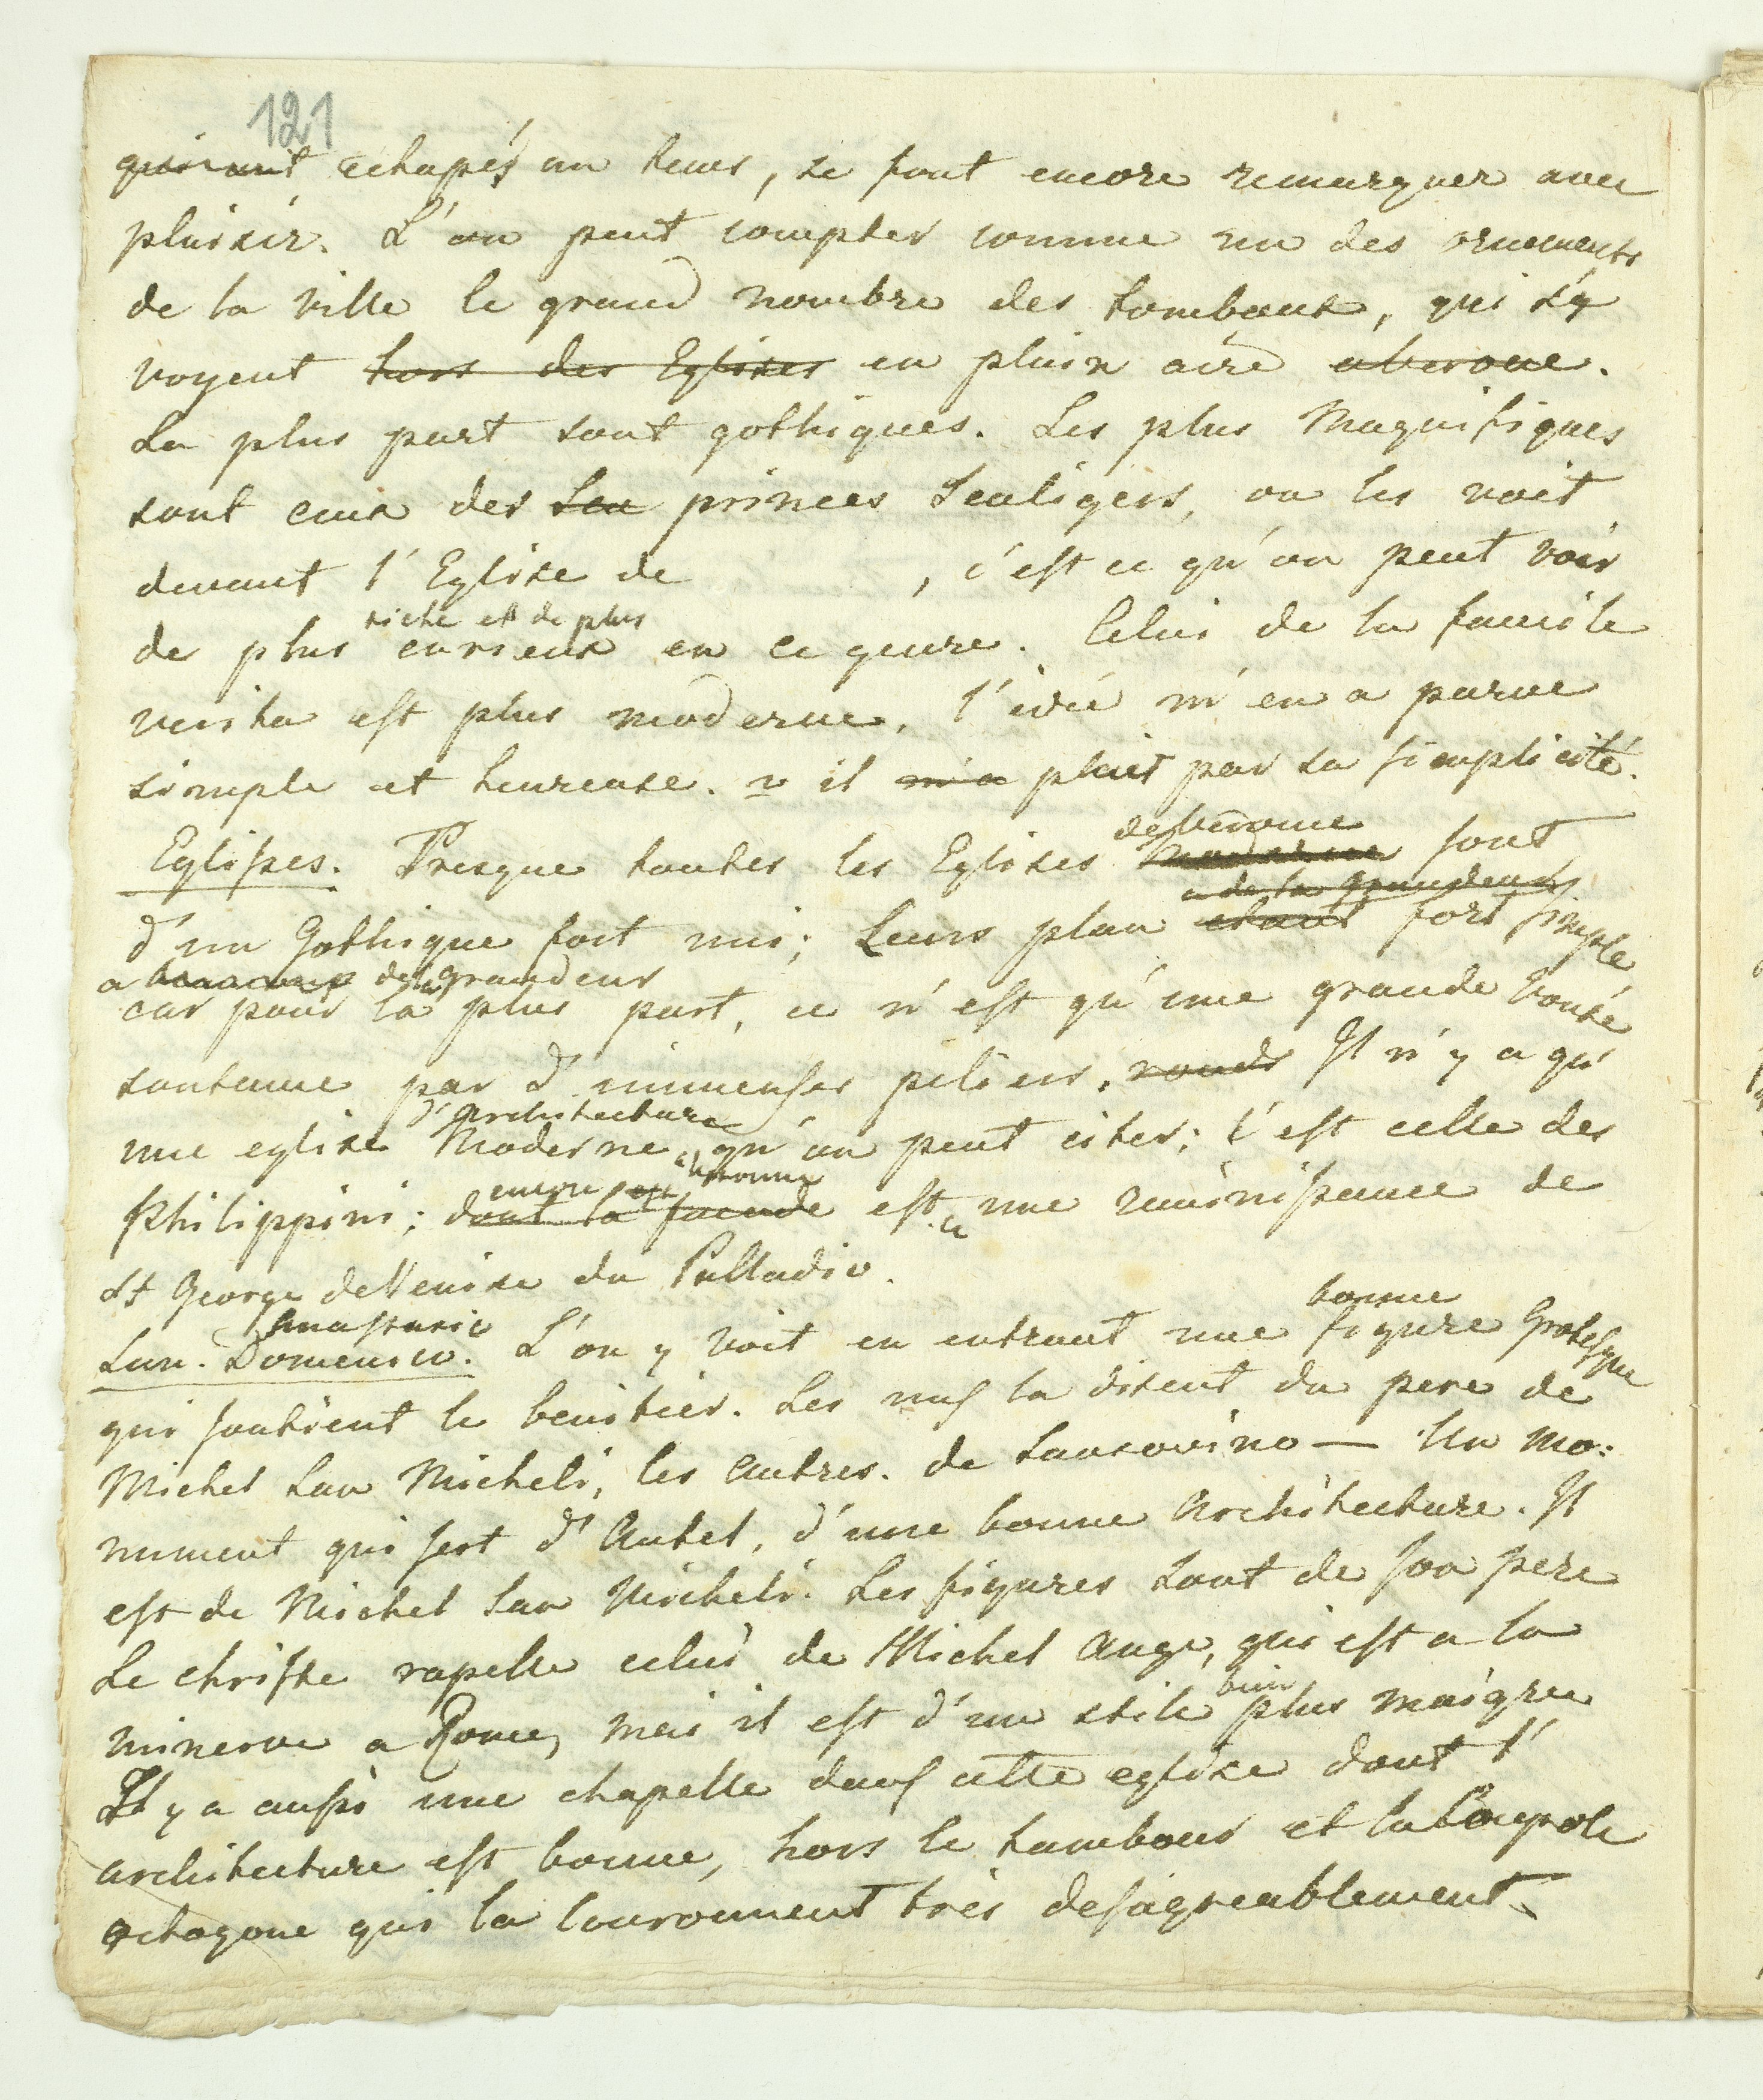 121
qui ont echapés au tems, se font encore remarquer avec
plaisir. L'on peut compter comme un des ornements
de la ville le grand nombre des tombeaux, qui s'y
voyent hors des Eglises en plain aire a Verone.
La plus part sont gothiques. Les plus Magnifiques
sont ceux des Sca princes Scaligers, on les voit
devant l'Eglise de , c'est ce qu'on peut voir
riche et de plus
de plus curieux en ce genre. Celui de la famile
verita est plus moderne, l'idée m'en a parue
simple et heureuse. il m'a plait par sa simplicité.
de Verone
Eglises. Presque toutes les Eglises sont
a de la grandeur
d'un Gothique fort uni; Leurs plan etant fort simple
a beaucoup de la grandeur
car pour la plus part, ce n'est qu'une grande Voute
soutenue par d'immenses piliers. ronds Il n'y a qu'
d'Architecture
une eglise Moderne, qu'on peut citer; C'est celle des
encore
Philippini; dont la facade est ce une reminissance de
St George de Venise du Palladio.
Anastasie bonne
San. Domenico. L'on y voit en entrant une figure Grotesque
qui soutient le benitier. Les uns la disent du pere de
Michel San Micheli, les autres. de Sansovino — Un mo:
nument qui sert d'Autel, d'une bonne Architecture. Il
est de Michel San Micheli. Les figures sont de son pere
Le christe rapelle celui de Michel Ange, qui est a la
bien
minerve a Rome, mais il est d'un stile plus maigre
Il y a aussi une chapelle dans cette eglise dont l'
architecture est bonne, hors le tambour et la Coupole
octogone qui la Couronnent très desagreablement.